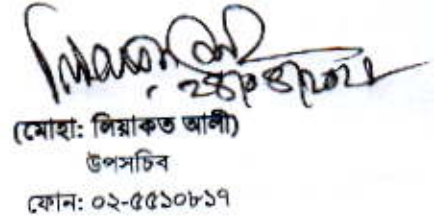 (মোহা: লিয়াকত আলী)
উপসচিব
ফোন: ০২-৫৫১০৮১৭